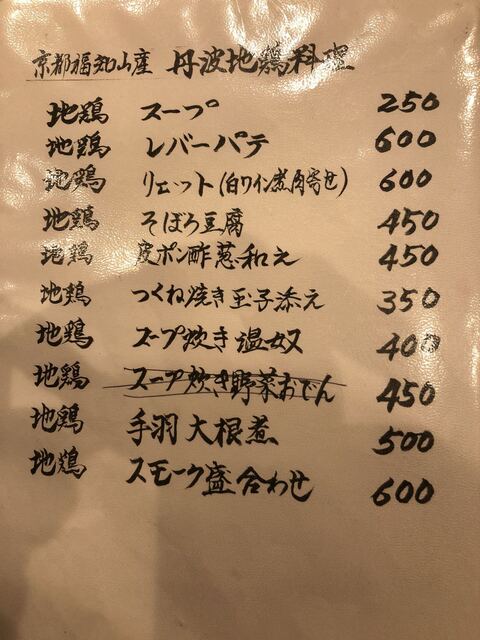 京都福知山産 丹波地鶏料理
地鶏 スープ 250
地鶏 レバーパテ 600
地鶏 リエット(白ワイン煮肉寄せ) 600
地鶏 そぼろ豆腐 450
地鶏 皮ポン酢葱和え 450
地鶏 つくね焼き玉子添え 350
地鶏 スープ炊き温奴 400
地鶏 スープ炊き野菜おでん 450
地鶏 手羽大根煮 500
地鶏 スモーク盛合わせ 600